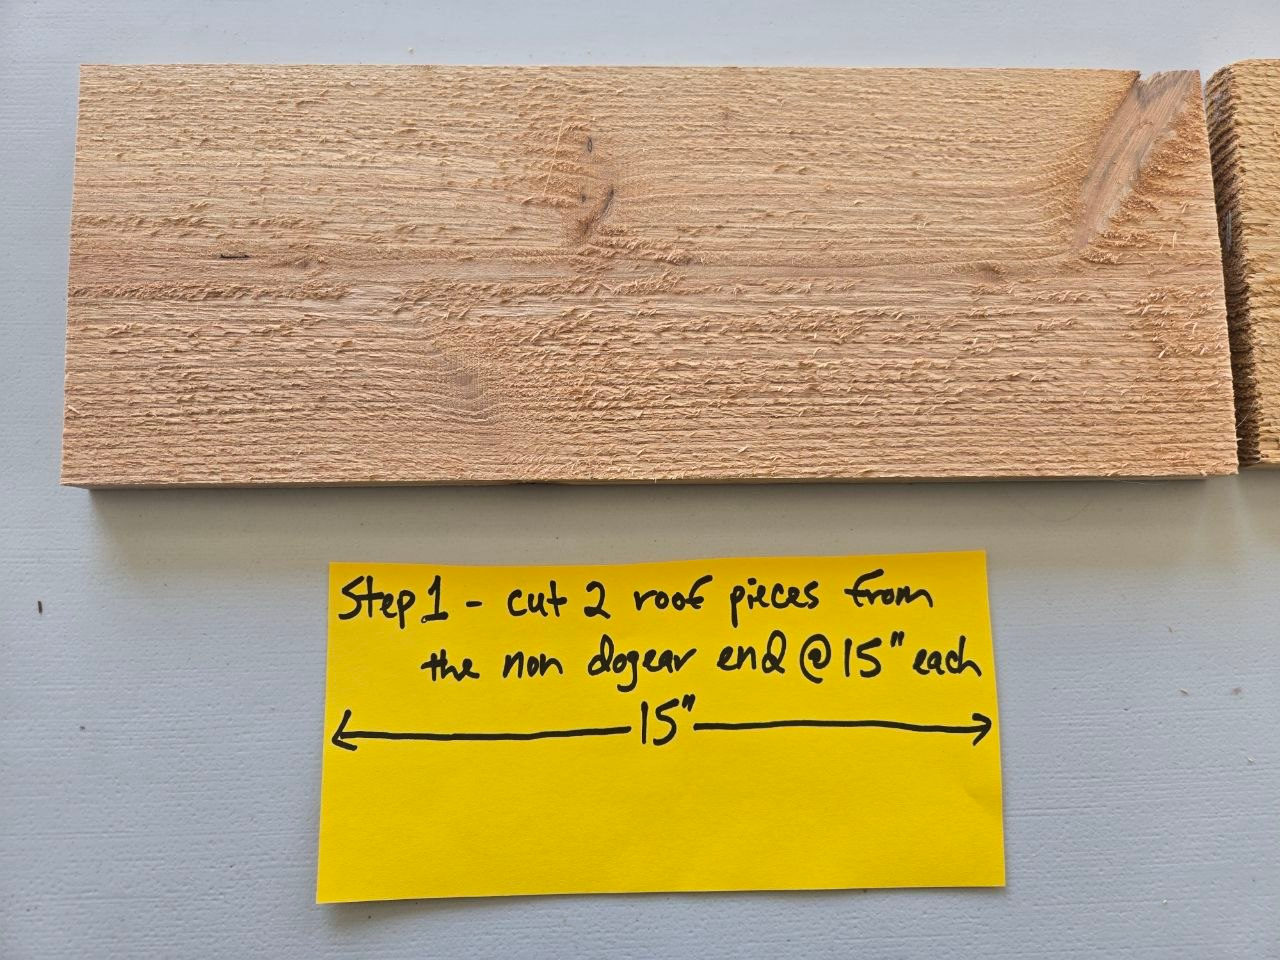 Step 1 - cut 2 roof pieces from
the non dogear end @ 15" each
15"